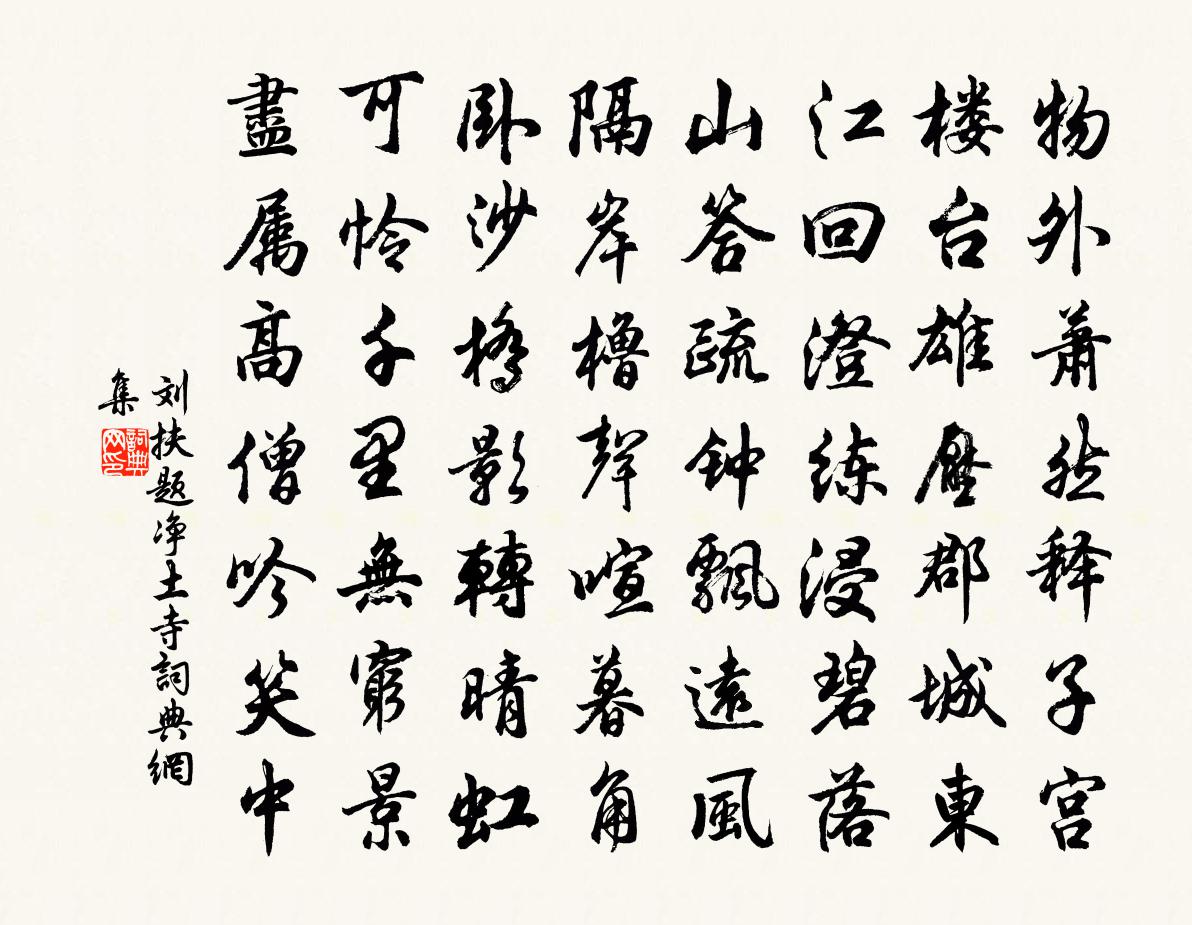 物外萧然释子宫
楼台雄壓郡城東
江回澄练浸碧落
山答疏钟飄遠風
隔岸櫓聲喧暮角
卧沙橋影轉晴虹
可怜千里無窮景
盡属高僧吟笑中
刘扶题净土寺詞典網
集
詞典网印